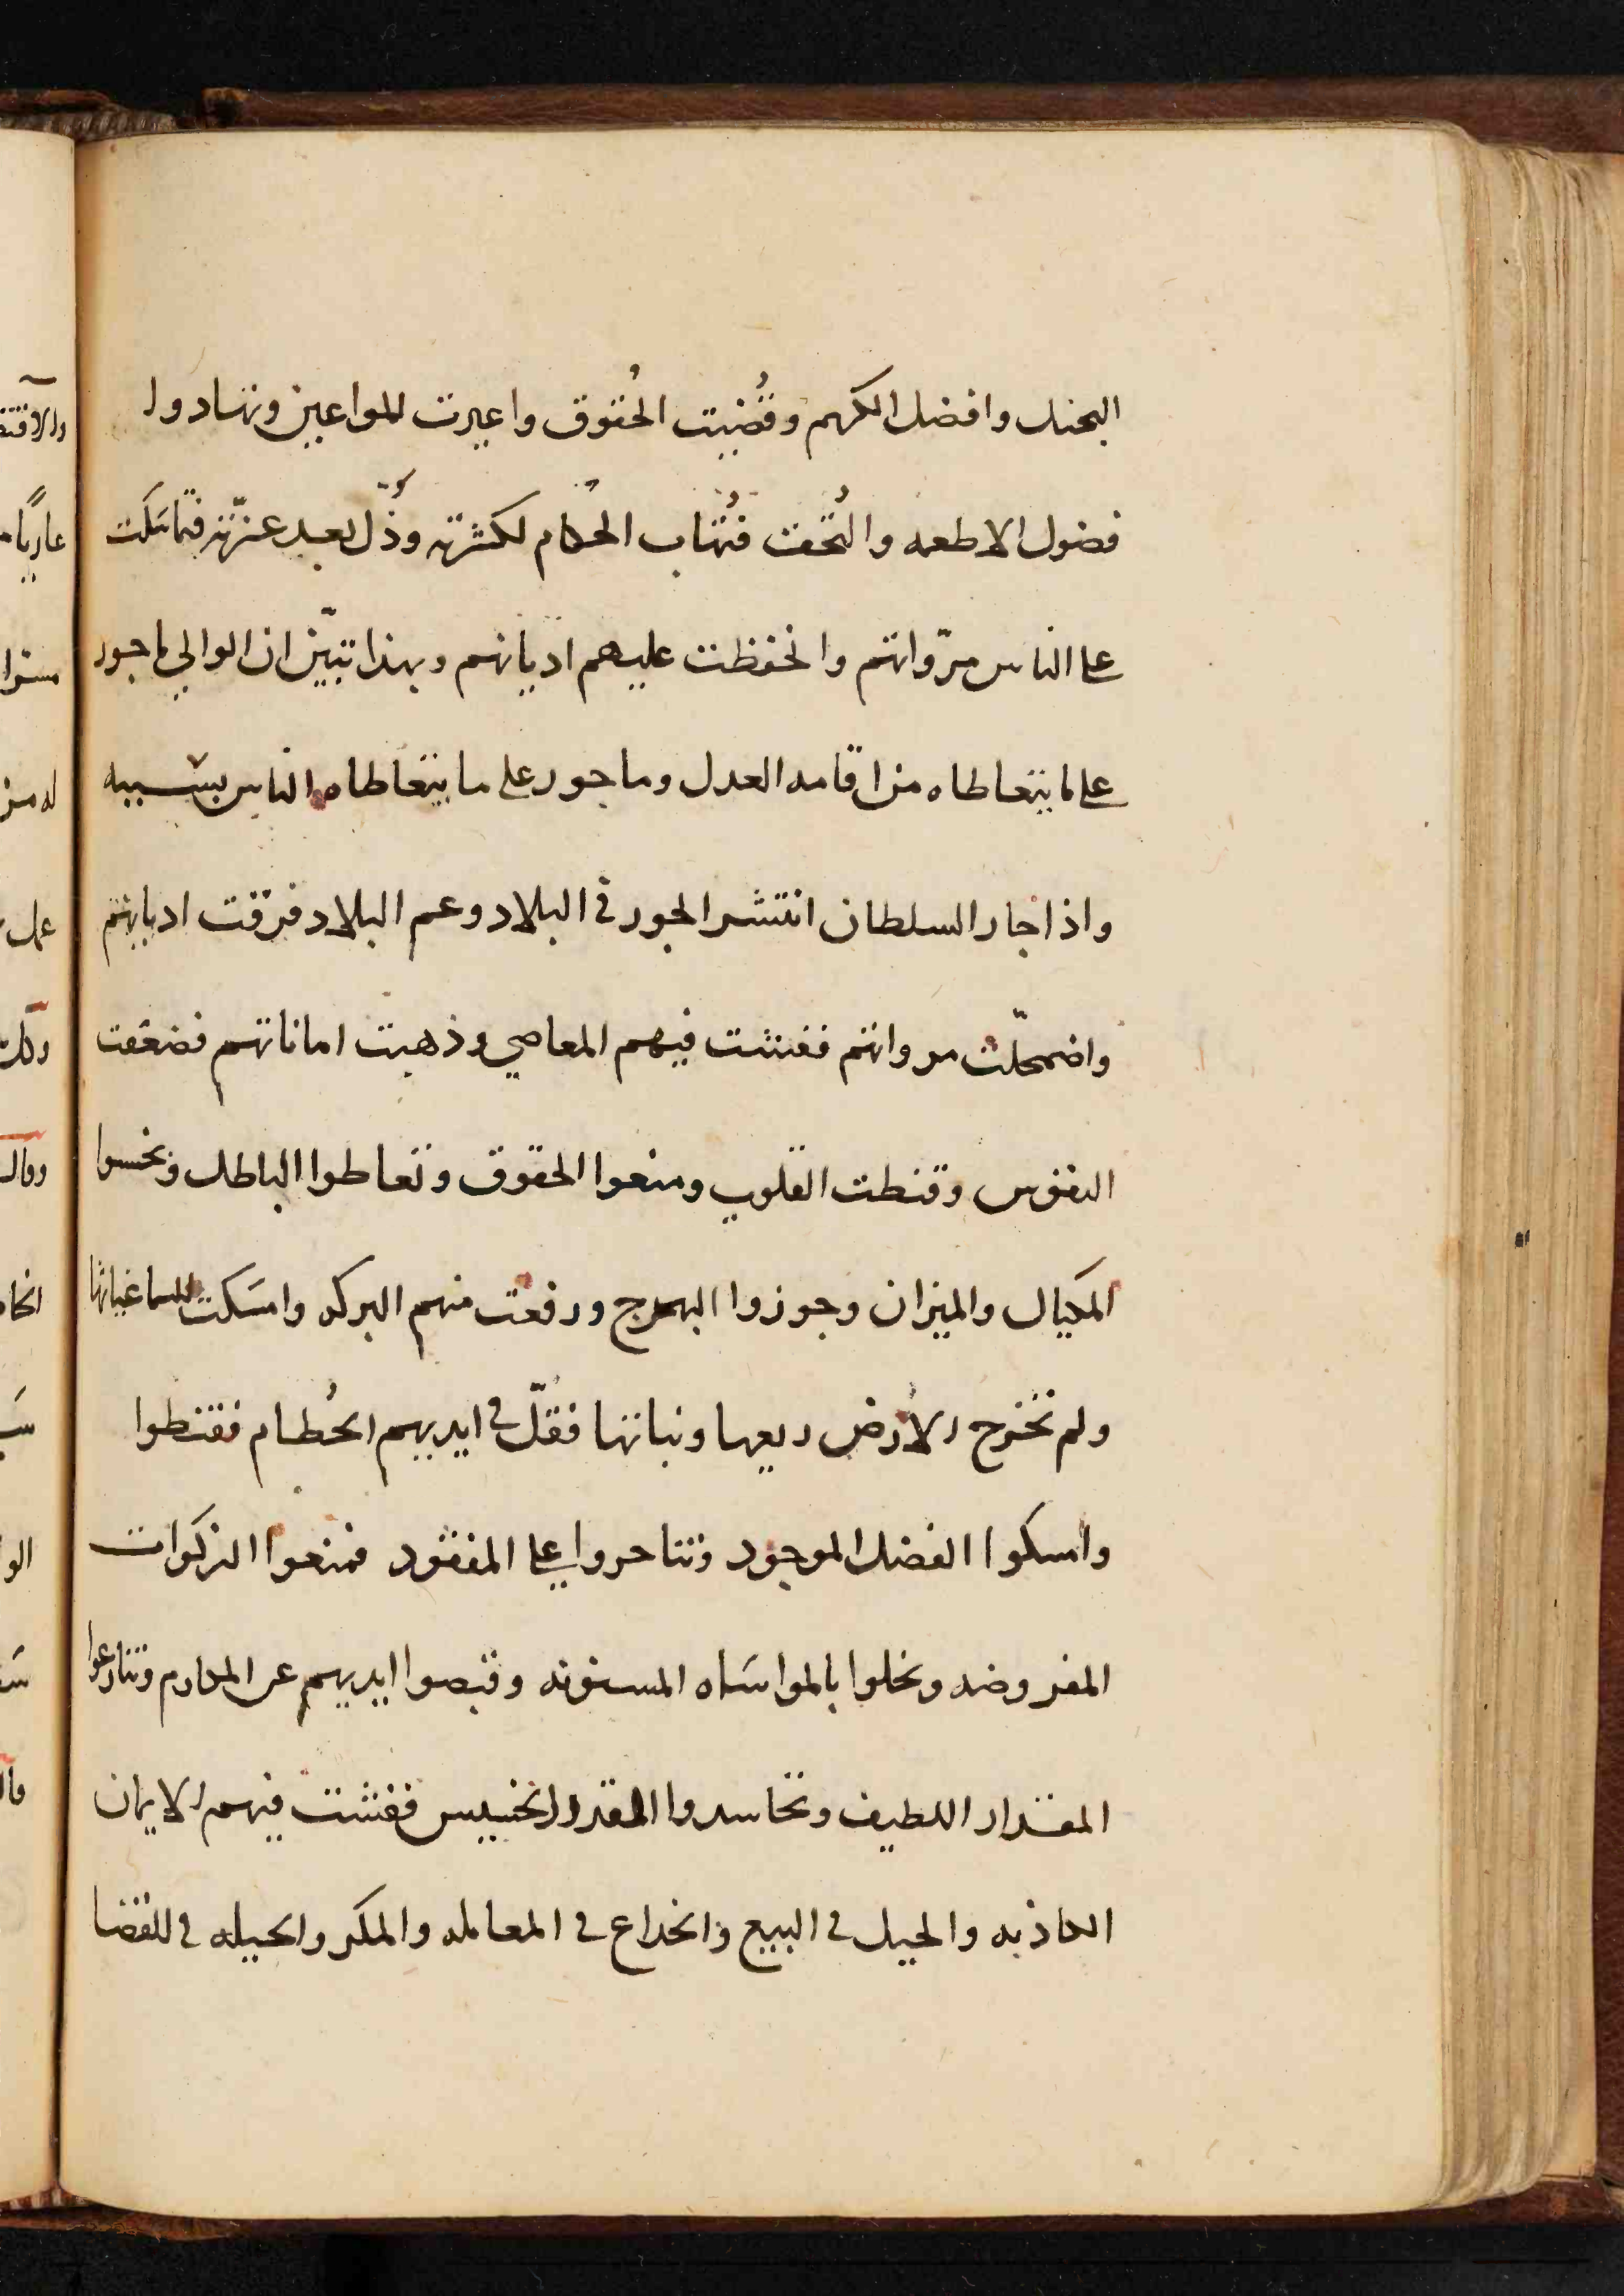 البخيل وافضل الكريم وقُضيت الحُقوق واعيرت المواعين وتهادوا
فضول الاطعمه والتُحف فتُهاب الحكام لكثرته وذُل بعد عزّته فتماسَكت
على الناس مرّواتهم وانحفظت عليهم اديانهم وبهذا تبيّن ان الوالي ماجور
على ما يتعاطاه من اقامه العدل وماجور على ما يتعاطاه الناس بسببه
واذا جار السلطان انتشر الجور في البلاد وعم البلاد فرقت اديانهم
واضمحلّت مرواتهم ففشت فيهم المعاصي وذهبت اماناتهم فضعفت
النفوس وقنطت القلوب ومنعوا الحقوق وتعاطوا الباطل وبخسوا
المكيال والميزان وجوزوا البهرج ورفعت منهم البركه وامسَكت السما غياثها
ولم تخرج الأرض ريعها ونباتها فقلّ في ايديهم الحُطام فقنطوا
وامسكوا الفضل الموجود وتناحروا على المفقود فمنعوا الزكوات
المفروضه وبخلوا بالمواسَاه المسنونه وقبضوا ايديهم عن المكارم وتنازعوا
المقدار اللطيف وتحاسدوا المقدار الخسيس ففشت فيهم الايمان
الكاذبه والحيل في البيع والخداع في المعامله والمكر والحيله في القضا